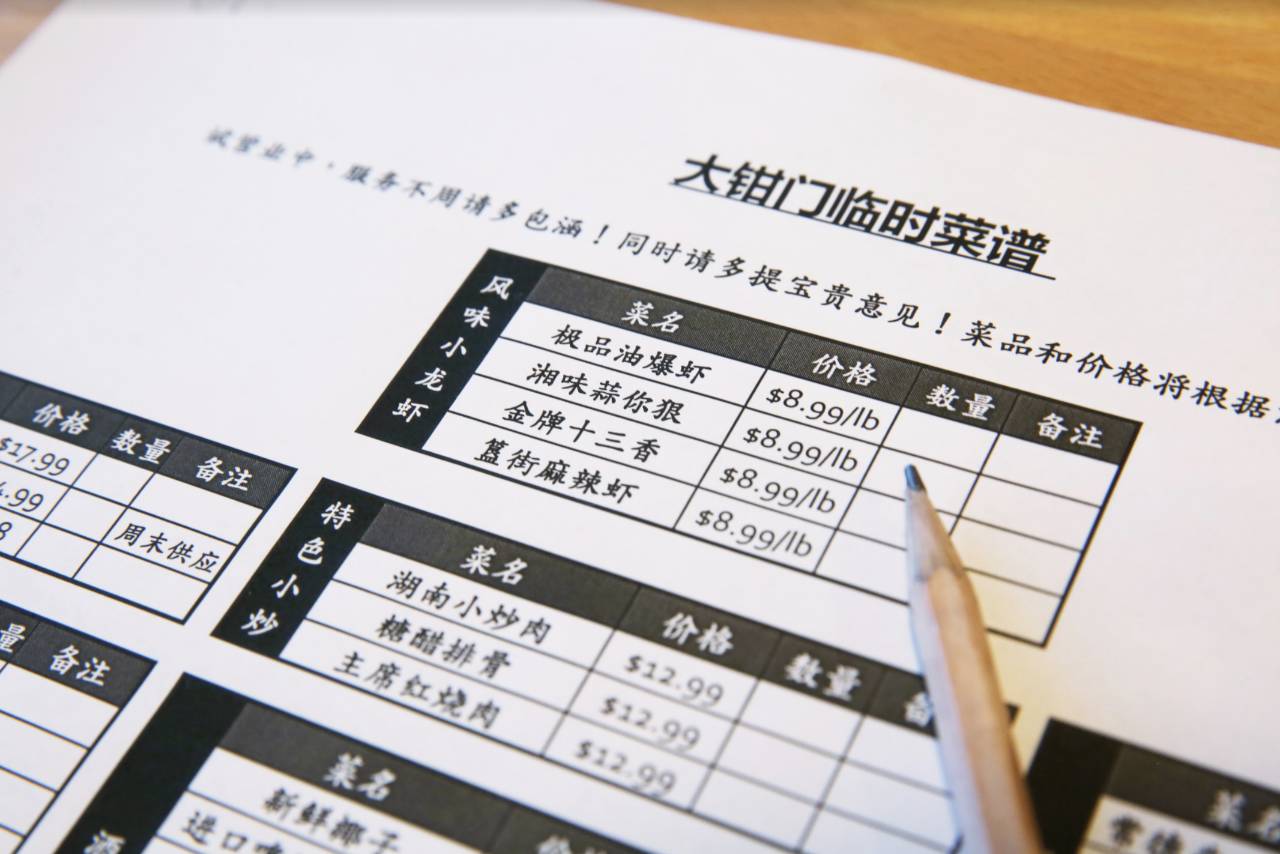 大钳门临时菜谱
试营业中，服务不周请多包涵！同时请多提宝贵意见！菜品和价格将根据
风味小龙虾
菜名 价格 数量 备注
极品油爆虾 $8.99/lb
湘味蒜你狠 $8.99/lb
金牌十三香 $8.99/lb
簋街麻辣虾 $8.99/lb
价格 数量 备注
$17.99
.99
8 周末供应
特色小炒
菜名 价格 数量 备
湖南小炒肉 $12.99
糖醋排骨 $12.99
主席红烧肉 $12.99
量 备注
酒
菜名 价格
新鲜椰子
进口啤
菜名
常德